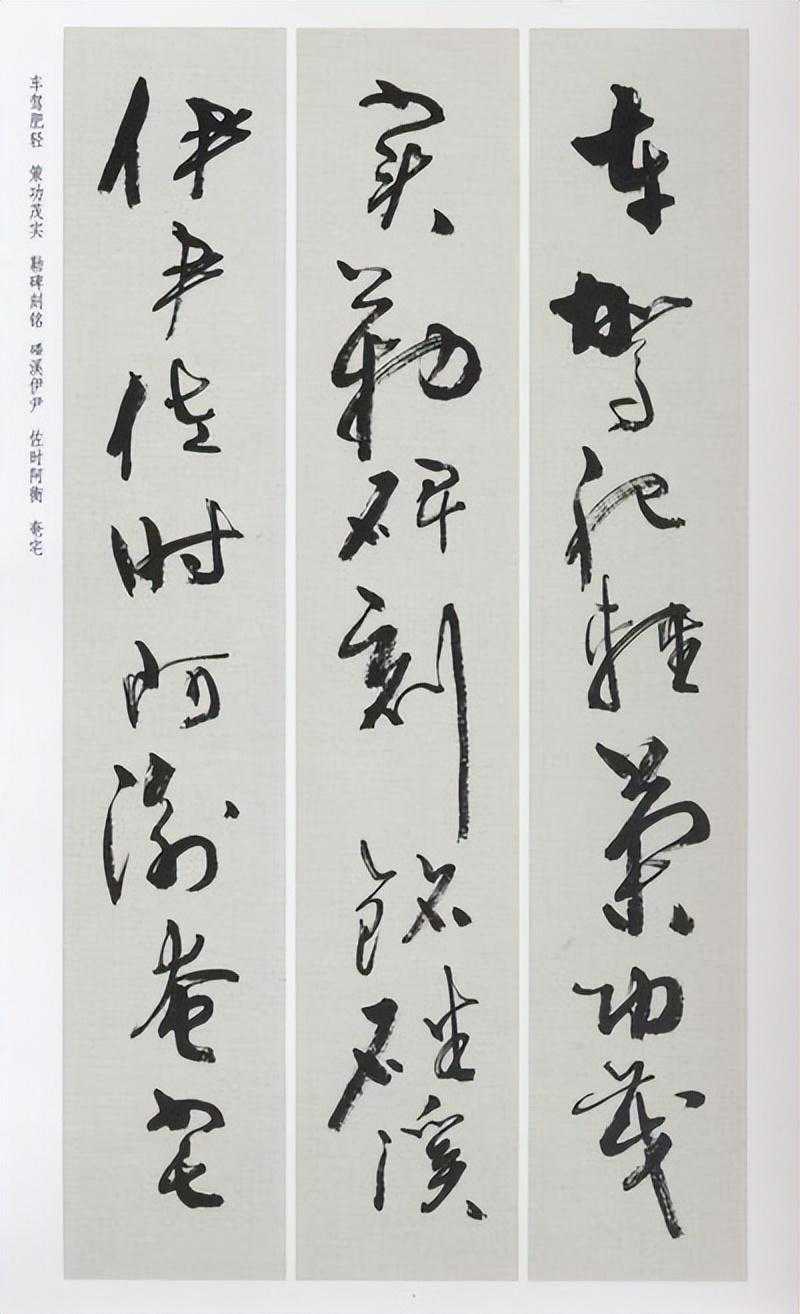 车驾肥轻策功茂
实勒碑刻铭磻溪
伊尹佐时阿衡奄宅
车驾肥轻 策功茂实 勒碑刻铭 磻溪伊尹 佐时阿衡 奄宅